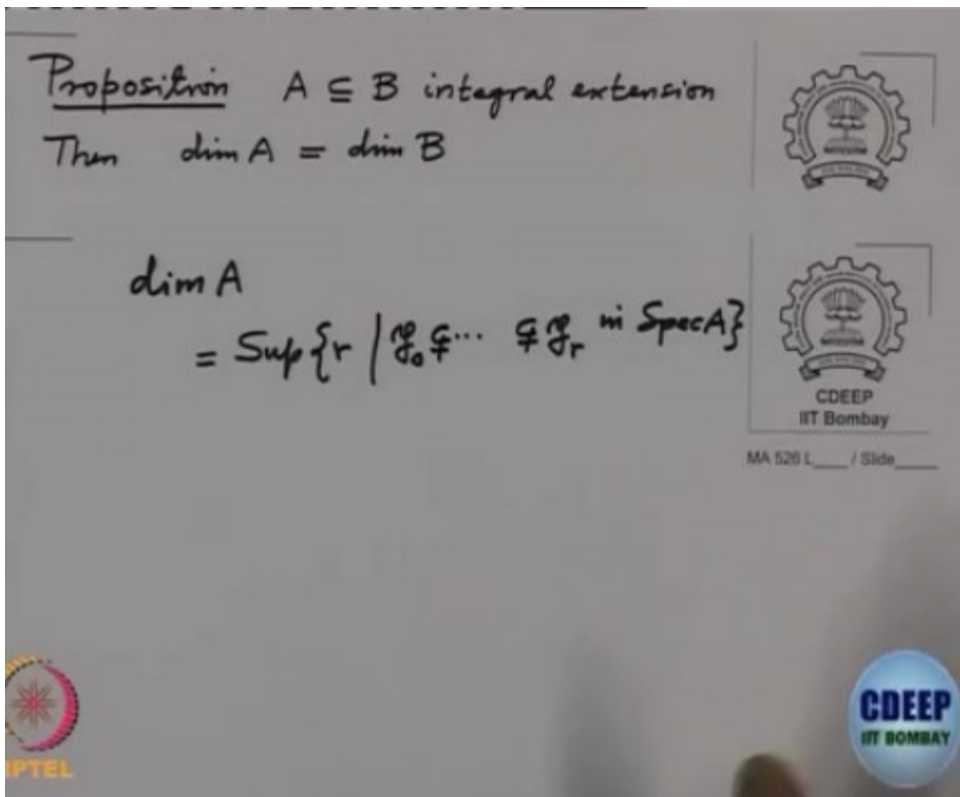 Proposition A ⊆ B integral extension
Then dim A = dim B
dim A
= Sup{r | 𝔭₀ ⊊ ... ⊊ 𝔭ᵣ in Spec A}
CDEEP
IIT Bombay
MA 526 L____ / Slide____
PTEL
CDEEP
IIT BOMBAY